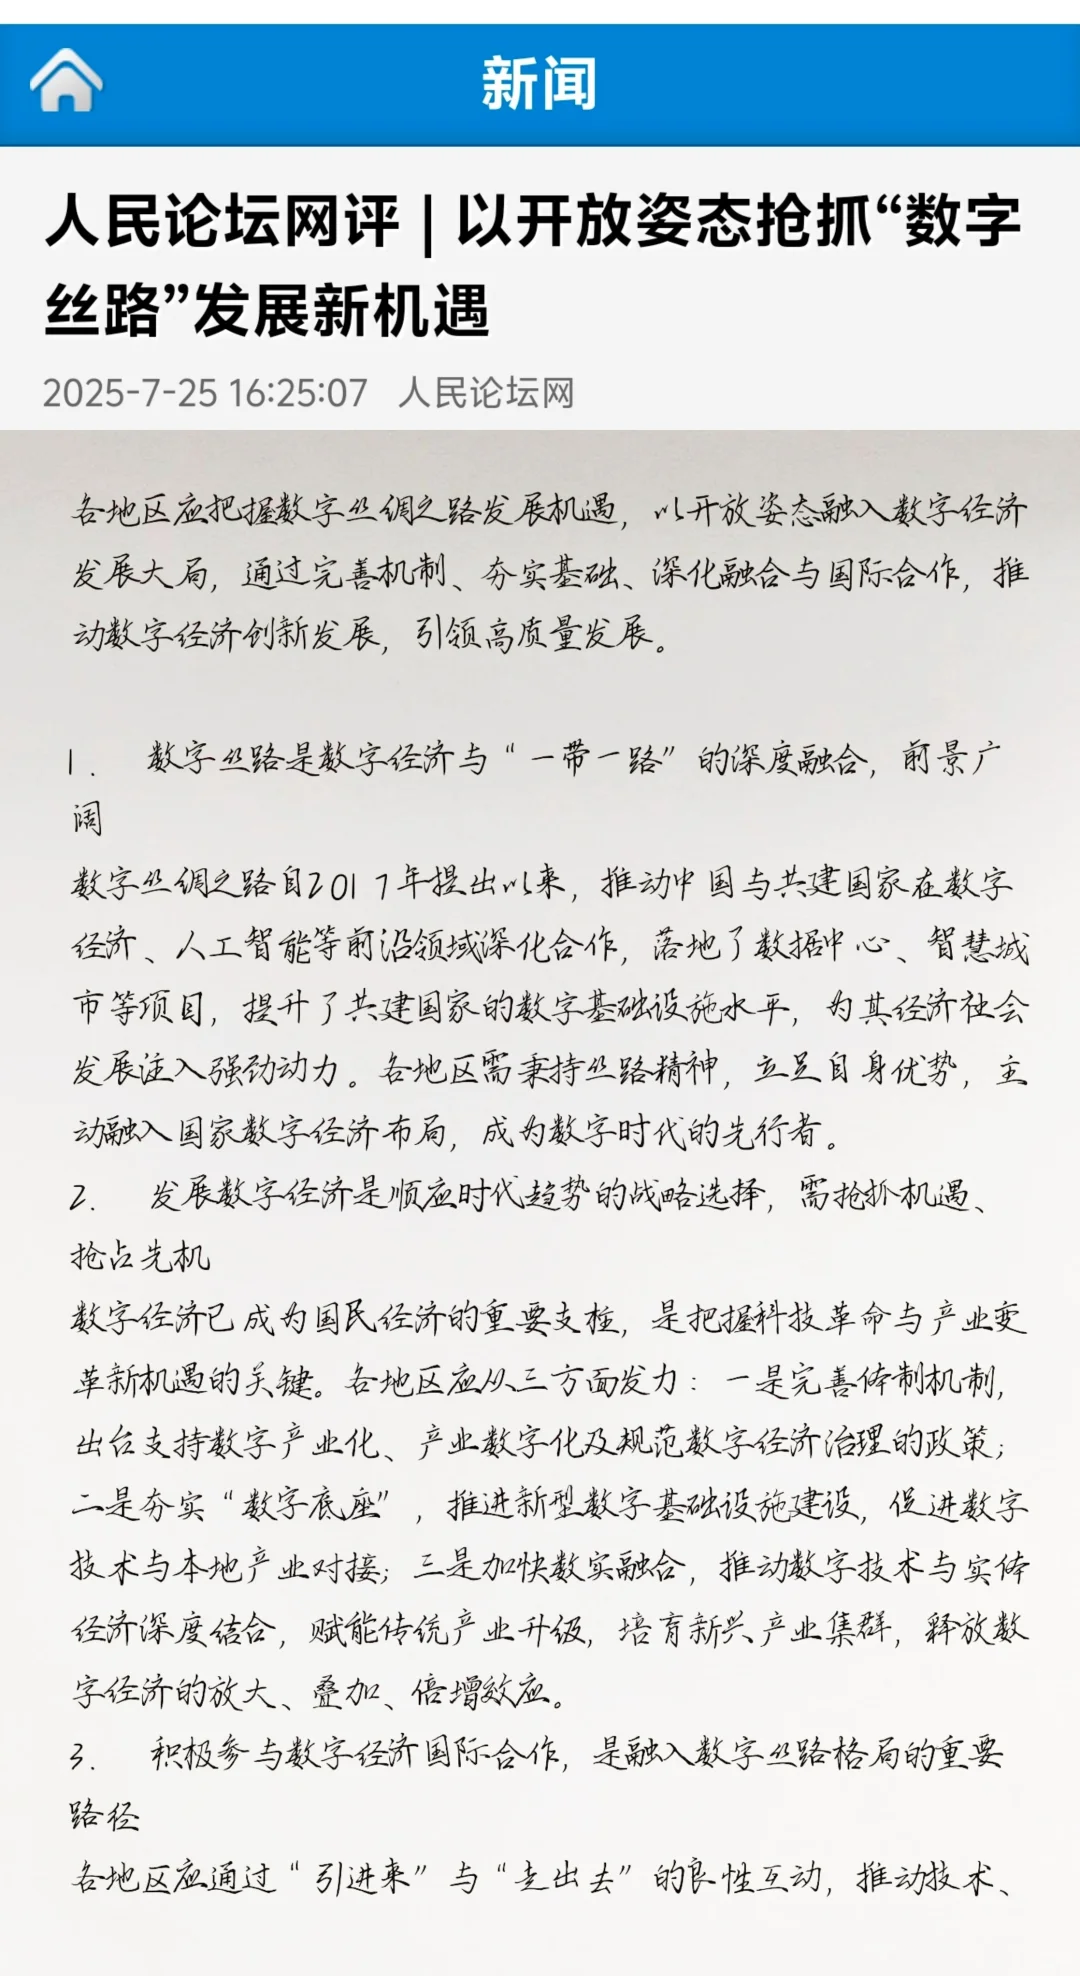 新闻
人民论坛网评 | 以开放姿态抢抓“数字
丝路”发展新机遇
2025-7-25 16:25:07 人民论坛网
各地区应把握数字丝绸之路发展机遇，以开放姿态融入数字经济
发展大局，通过完善机制、夯实基础、深化融合与国际合作，推
动数字经济创新发展，引领高质量发展。
1. 数字丝路是数字经济与“一带一路”的深度融合，前景广
阔
数字丝绸之路自2017年提出以来，推动中国与共建国家在数字
经济、人工智能等前沿领域深化合作，落地了数据中心、智慧城
市等项目，提升了共建国家的数字基础设施水平，为其经济社会
发展注入强劲动力。各地区需秉持丝路精神，立足自身优势，主
动融入国家数字经济布局，成为数字时代的先行者。
2. 发展数字经济是顺应时代趋势的战略选择，需抢抓机遇、
抢占先机
数字经济已成为国民经济的重要支柱，是把握科技革命与产业变
革新机遇的关键。各地区应从三方面发力：一是完善体制机制，
出台支持数字产业化、产业数字化及规范数字经济治理的政策；
二是夯实“数字底座”，推进新型数字基础设施建设，促进数字
技术与本地产业对接；三是加快数实融合，推动数字技术与实体
经济深度结合，赋能传统产业升级，培育新兴产业集群，释放数
字经济的放大、叠加、倍增效应。
3. 积极参与数字经济国际合作，是融入数字丝路格局的重要
路径
各地区应通过“引进来”与“走出去”的良性互动，推动技术、